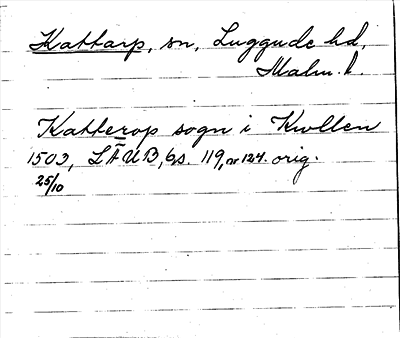 Kattarp, sn, Luggude hd,
Malm. l.
Katterop sogn i Kullen
1503, LÄUB, 6, s. 119, nr 124. orig.
25/10